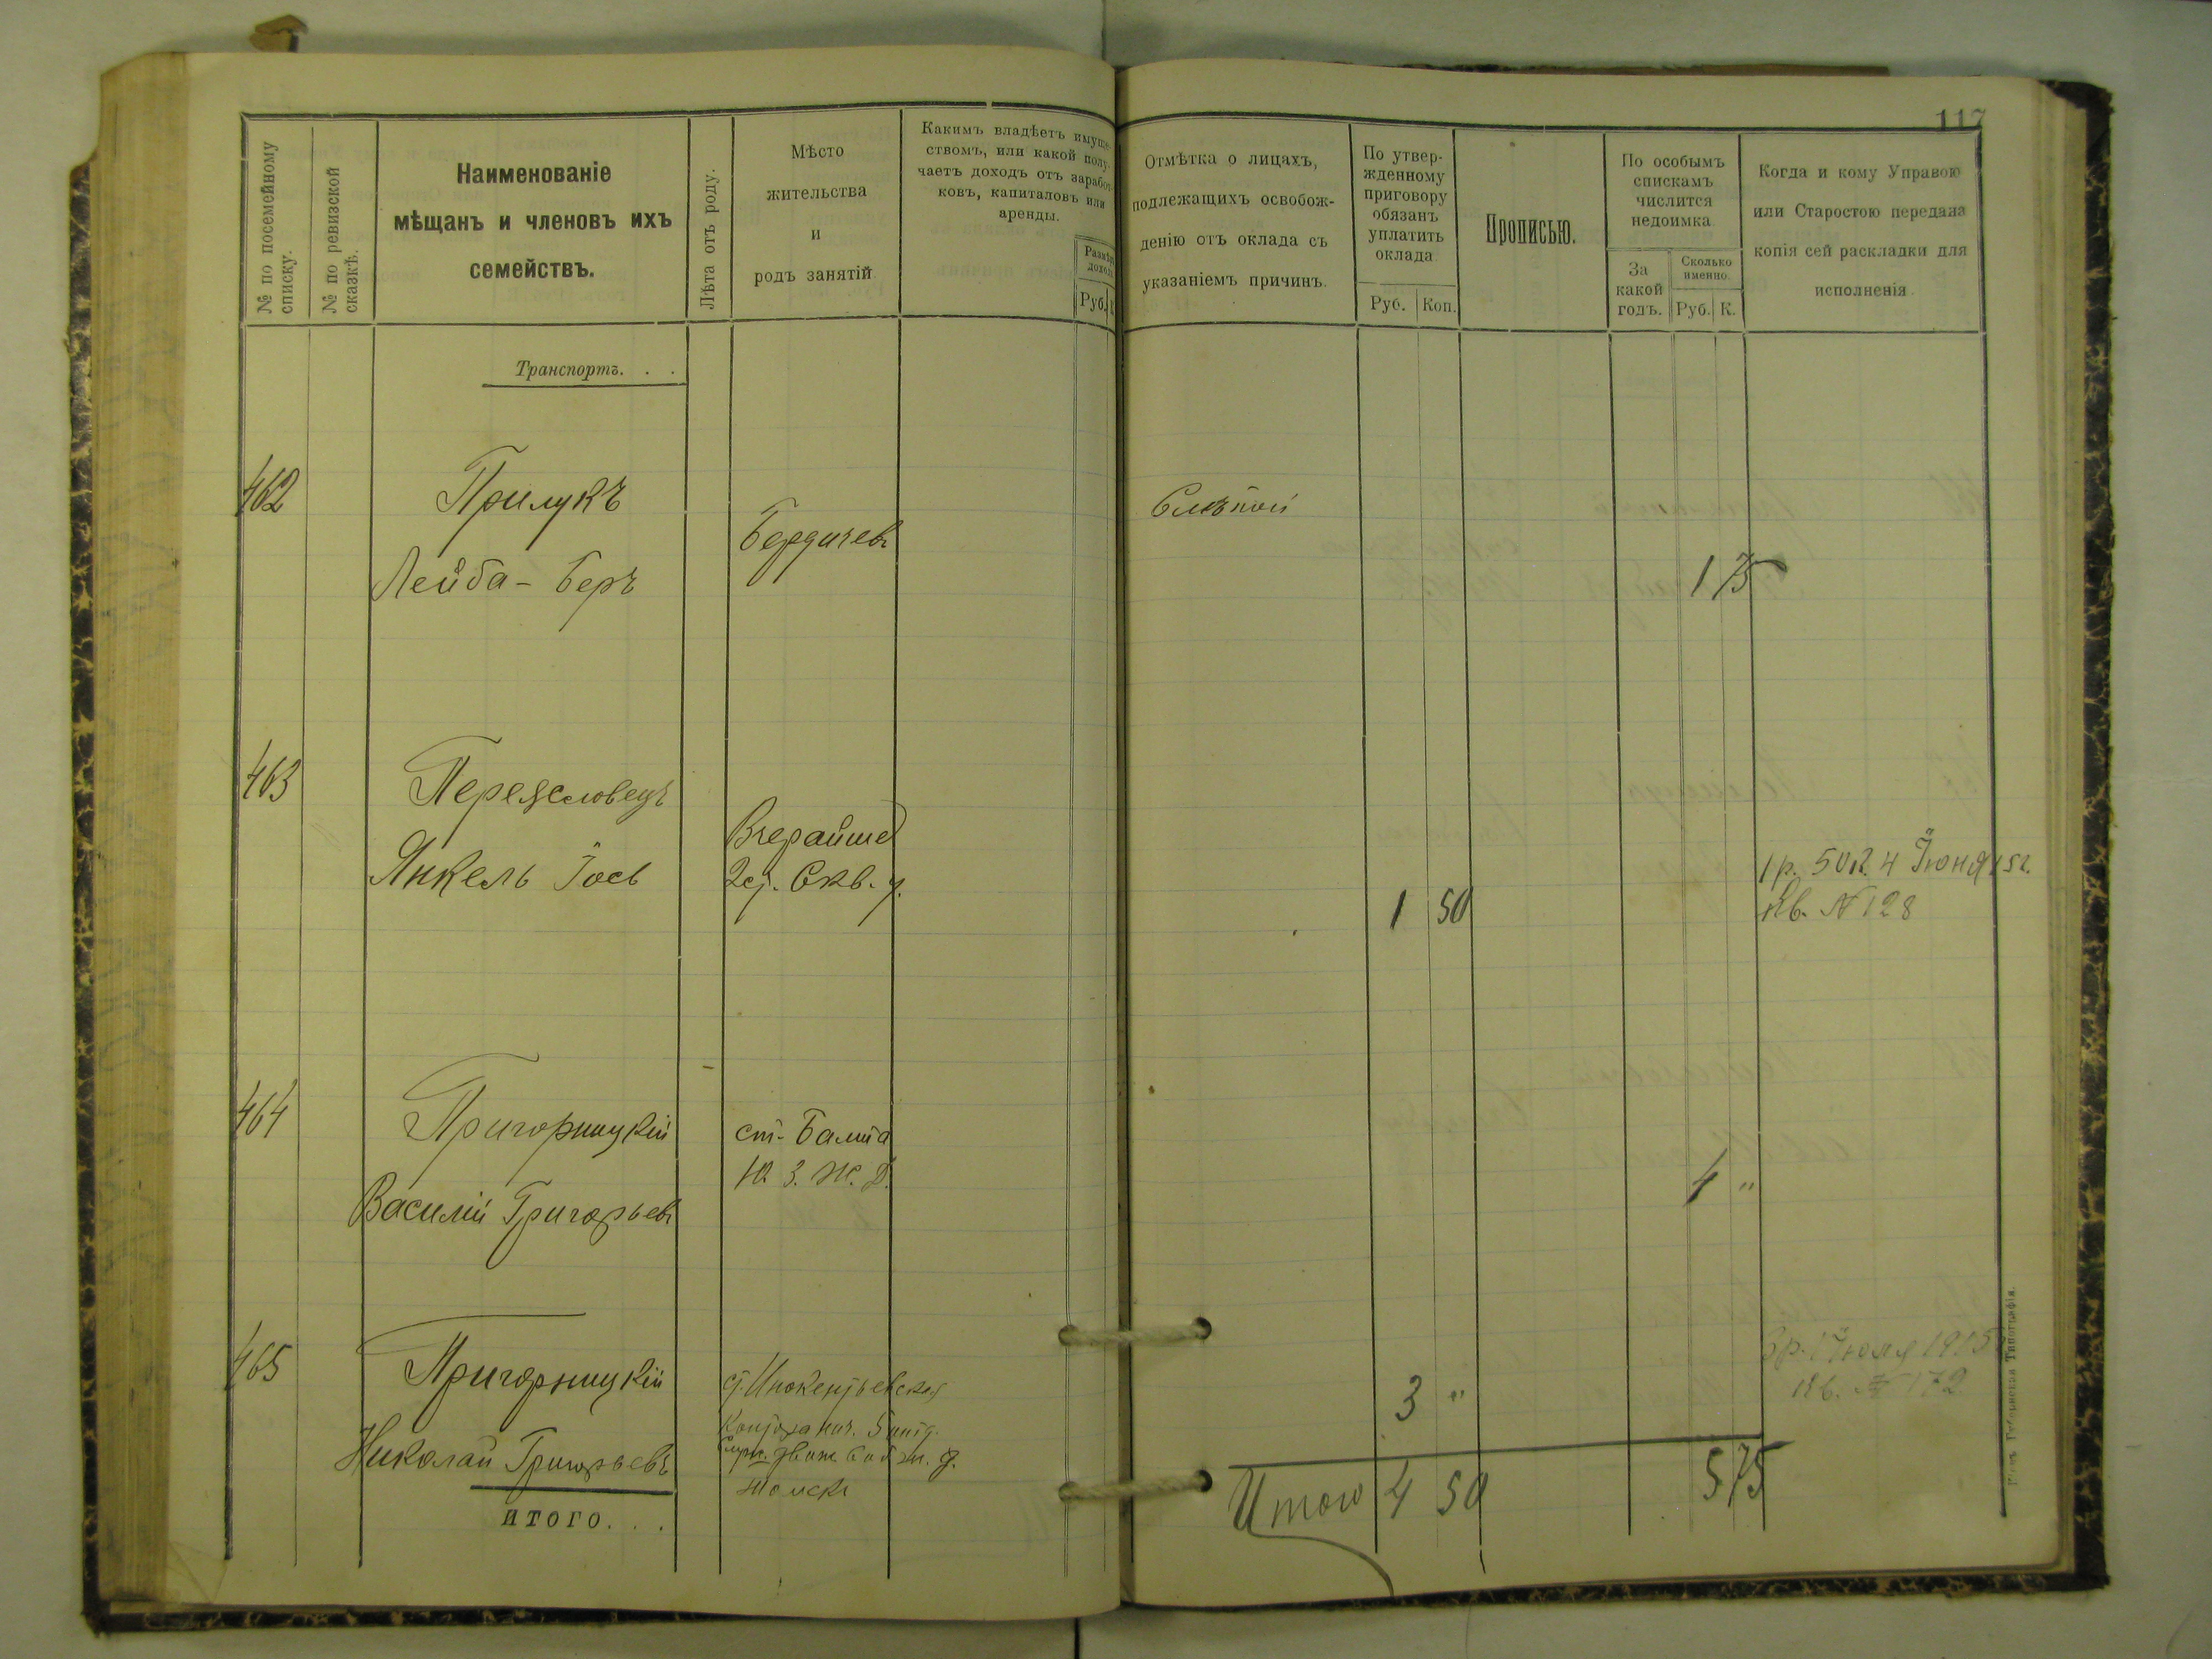 117
№ по посемейному
списку.
№ по ревизской
сказкѣ.
Наименованіе
мѣщанъ и членовъ ихъ
семействъ.
Лѣта отъ роду.
Мѣсто
жительства
и
родъ занятій
Какимъ владѣетъ имуще-
ствомъ, или какой полу-
чаетъ доходъ отъ заработ-
ковъ, капиталовъ или
аренды.
Руб.
Отмѣтка о лицахъ,
подлежащихъ освобож-
денію отъ оклада съ
указаніемъ причинъ.
По утвер-
жденному
приговору
обязанъ
уплатить
оклада
Руб. Коп.
Прописью.
По особымъ
спискамъ
числится
недоимка
За
какой
годъ.
Сколько
именно.
Руб. К.
Когда и кому Управою
или Старостою передана
копія сей раскладки для
исполненія
Транспортъ. . .
462
Прилукъ
Лейба-Беръ
Бердичевъ
Слѣпой
1 75
463
Переясловецъ
Янкель Іось
Вчерайше
Скв. у.
1 50
1 р. 50 к. 4 Іюня 15 г.
Кв. № 128
464
Пригорницкій
Василій Григорьевъ
ст. Балта
Ю. З. Ж. Д.
4 "
465
Пригорницкій
Николай Григорьевъ
ст. Инокентьевская
ж. д.
Томскъ
3 "
3 р. 1 Іюля 1915
Кв. № 172
ИТОГО. . .
Итого 4 50
5 75